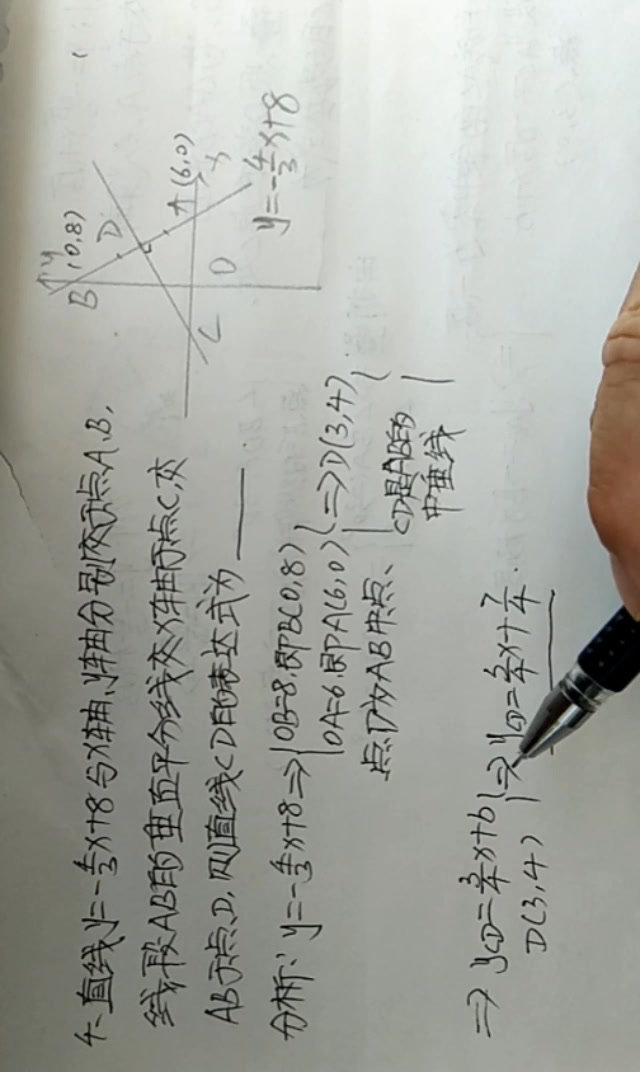 4、直线y=-4/3x+8与x轴、y轴分别交于点A、B,
线段AB的垂直平分线交x轴于点C,交
AB于点D,则直线CD的表达式为____
y
B (0,8)
D
A (6,0)
x
C
O
y=-4/3x+8
分析: y=-4/3x+8 => { OB=8,即B(0,8)
OA=6,即A(6,0) } => D(3,4)
点D为AB中点、
CD是AB的
中垂线
=> yCD=3/4x+b
D(3,4) } => yCD=3/4x+7/4.